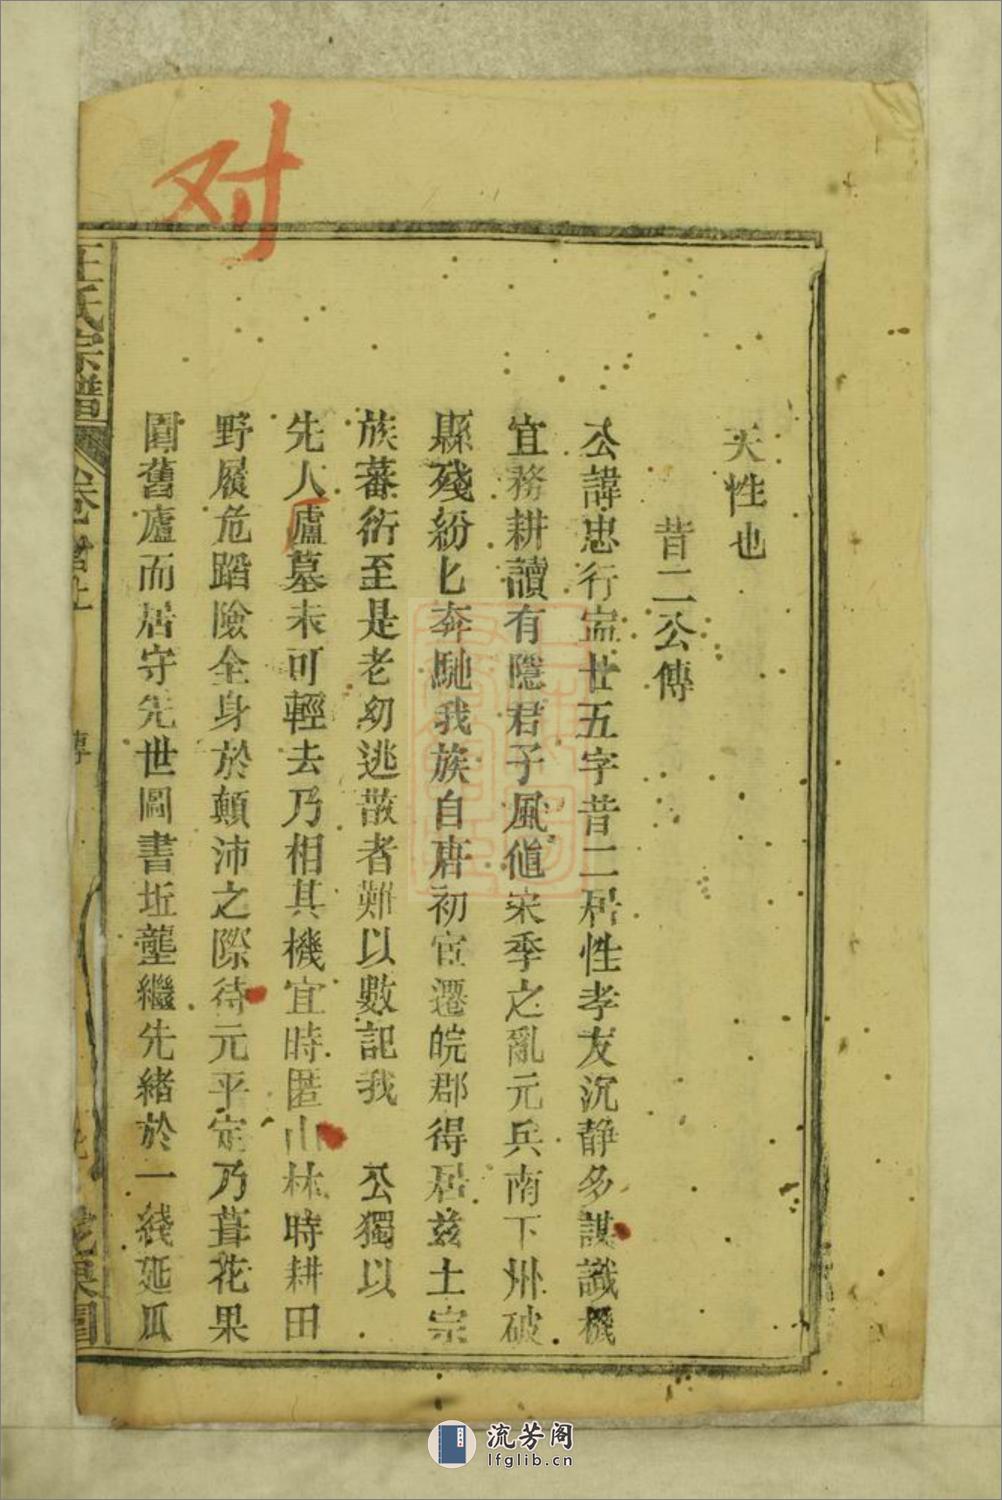 对
天性也
昔二公傳
公諱忠行寍廿五字昔二居性孝友沉静多謀識機
宜務耕讀有隱君子風值宋季之亂元兵南下州破
縣殘紛匕奔馳我族自唐初宦遷皖郡得居兹土宗
族蕃衍至是老幼逃散者難以數記我 公獨以
先人廬墓未可輕去乃相其機宜時匿山林時耕田
野履危蹈險全身於顛沛之際待元平定乃葺花果
園舊廬而居守先世圖書坵壟繼先緒於一綫延瓜
王氏宗譜
卷首上
傳
花果園
流芳阁
lfglib.cn